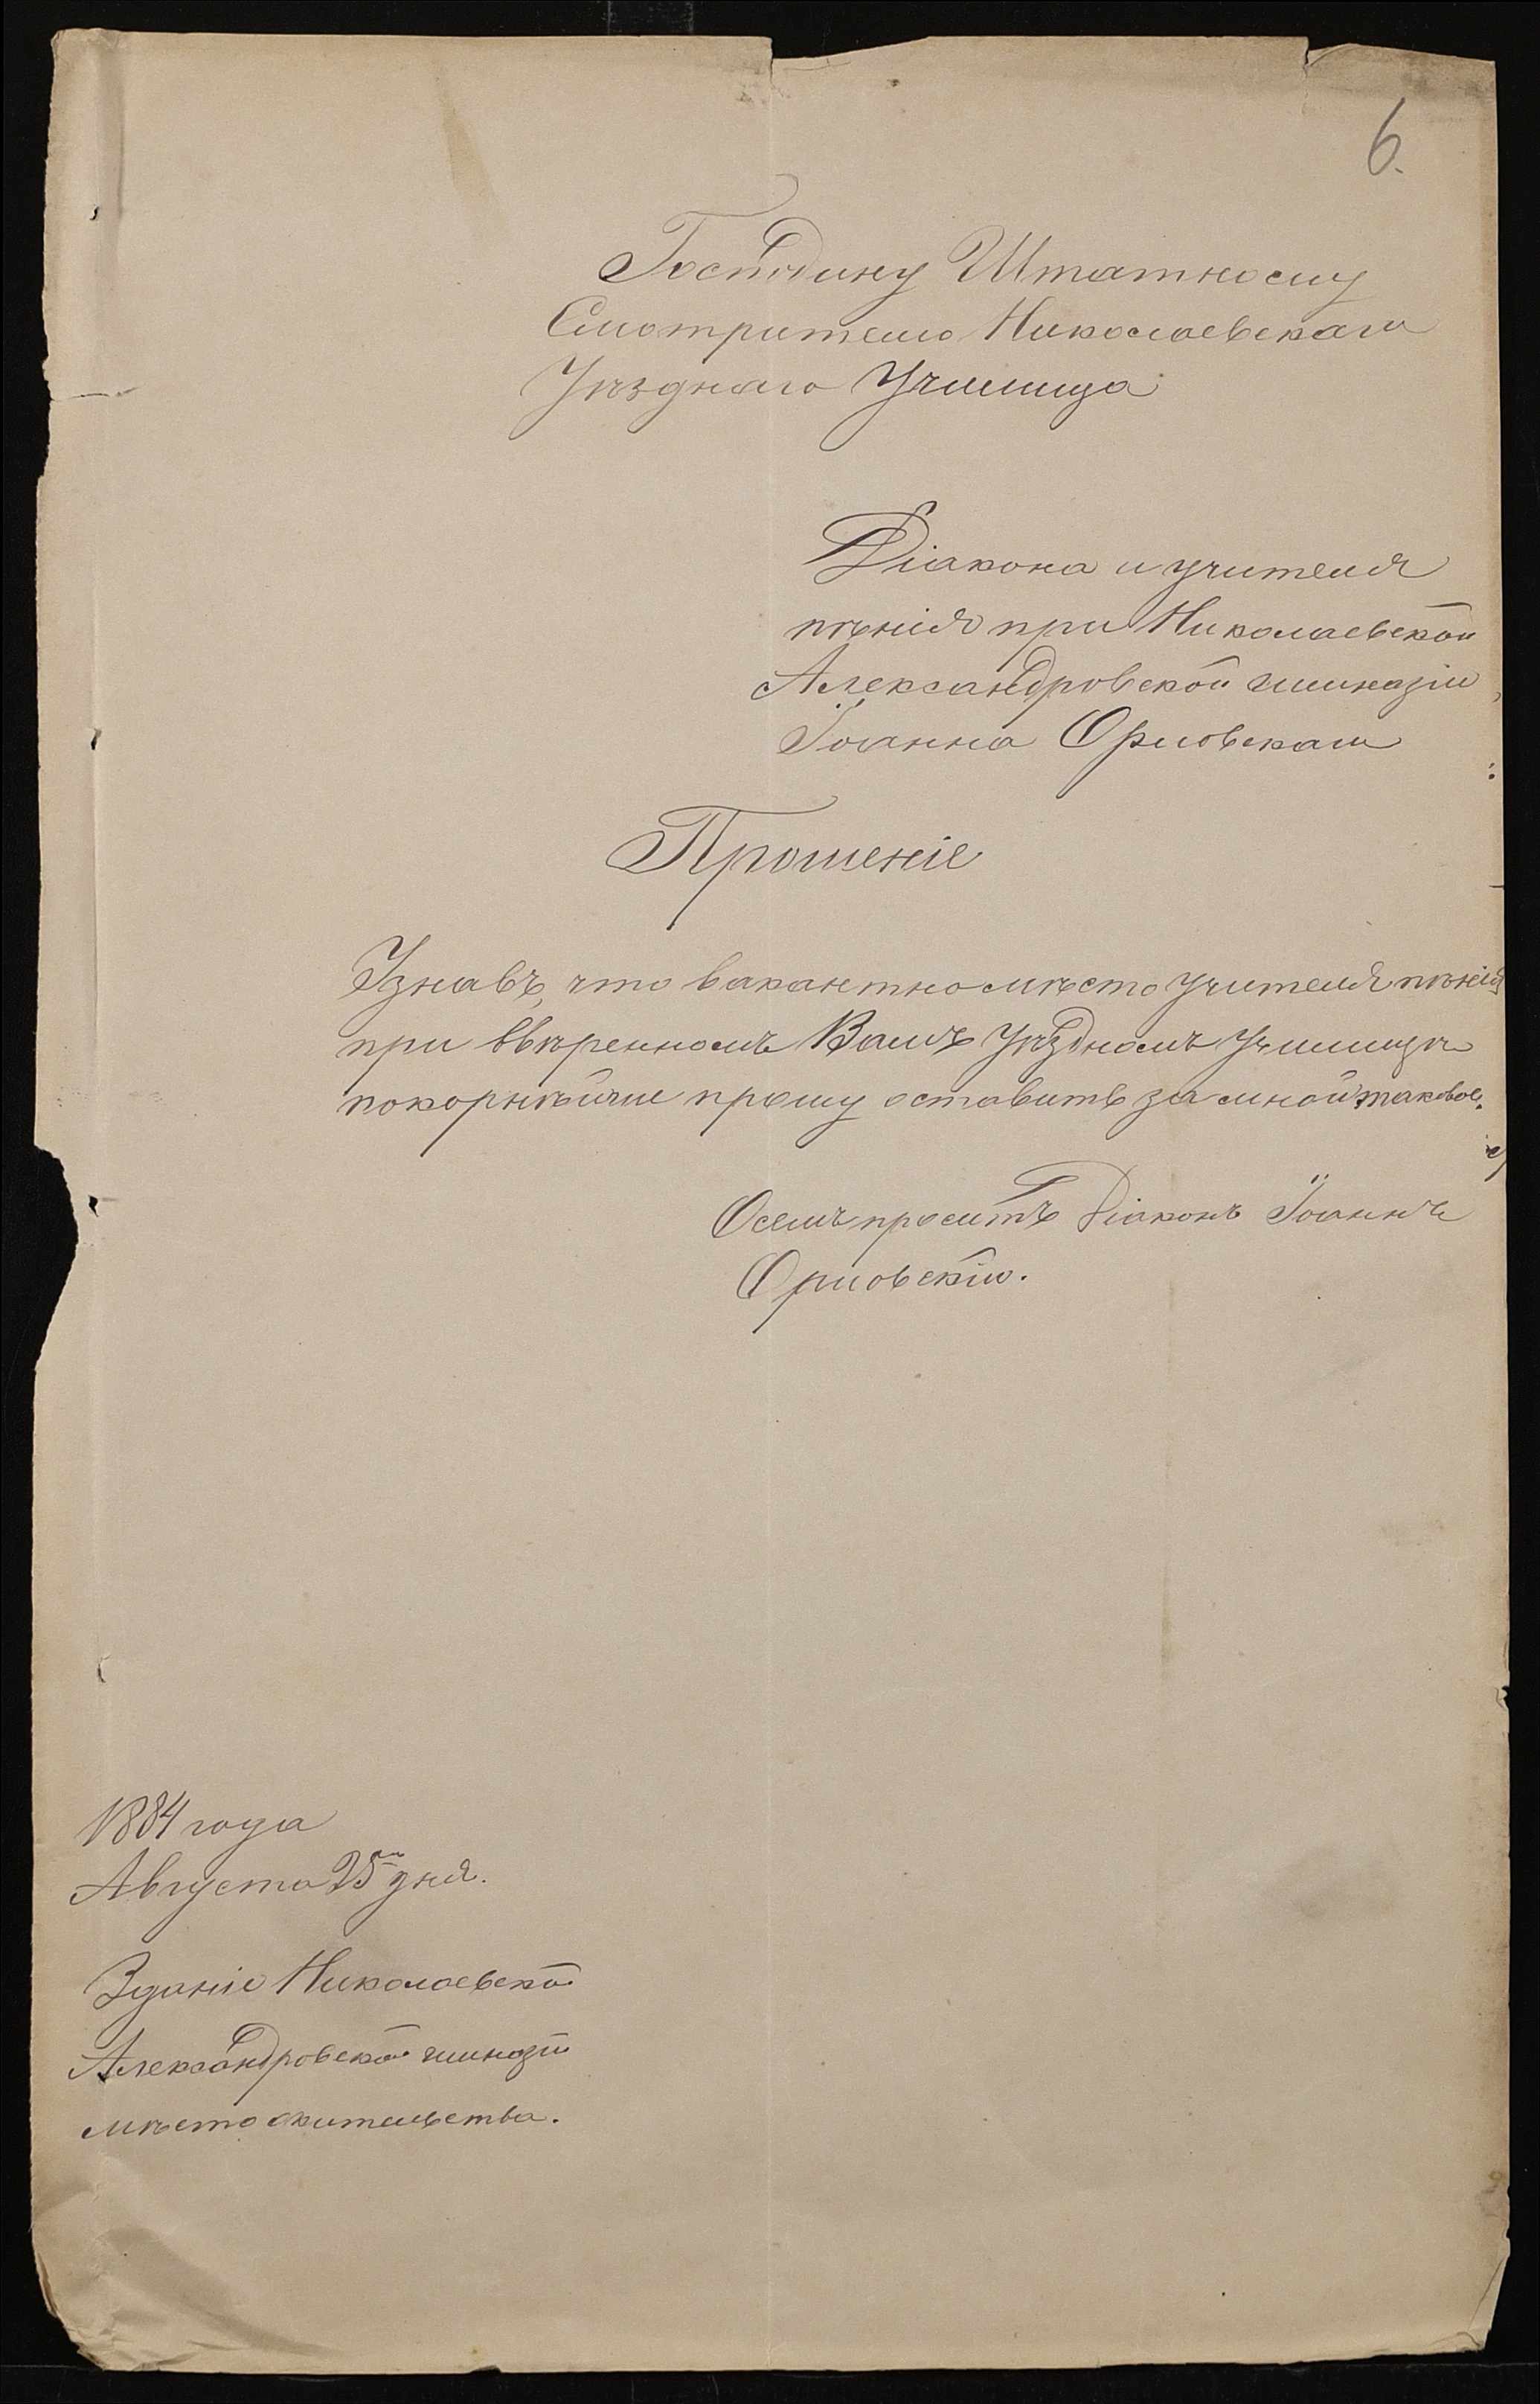 6.
Господину Штатному
Смотрителю Николаевскаго
Уѣзднаго Училища
Діакона и учителя
пѣнія при Николаевской
Александровской гимназіи
Іоанна Орловскаго
Прошеніе
Узнавъ, что вакантно мѣсто учителя пѣнія
при ввѣренномъ Вамъ Уѣздномъ Училищѣ
покорнѣйше прошу оставить за мной таковое.
О семъ проситъ Діаконъ Іоаннъ
Орловскій.
1884 года
Августа 25го дня.
Зданіе Николаевской
Александровской гимназіи
мѣсто жительства.